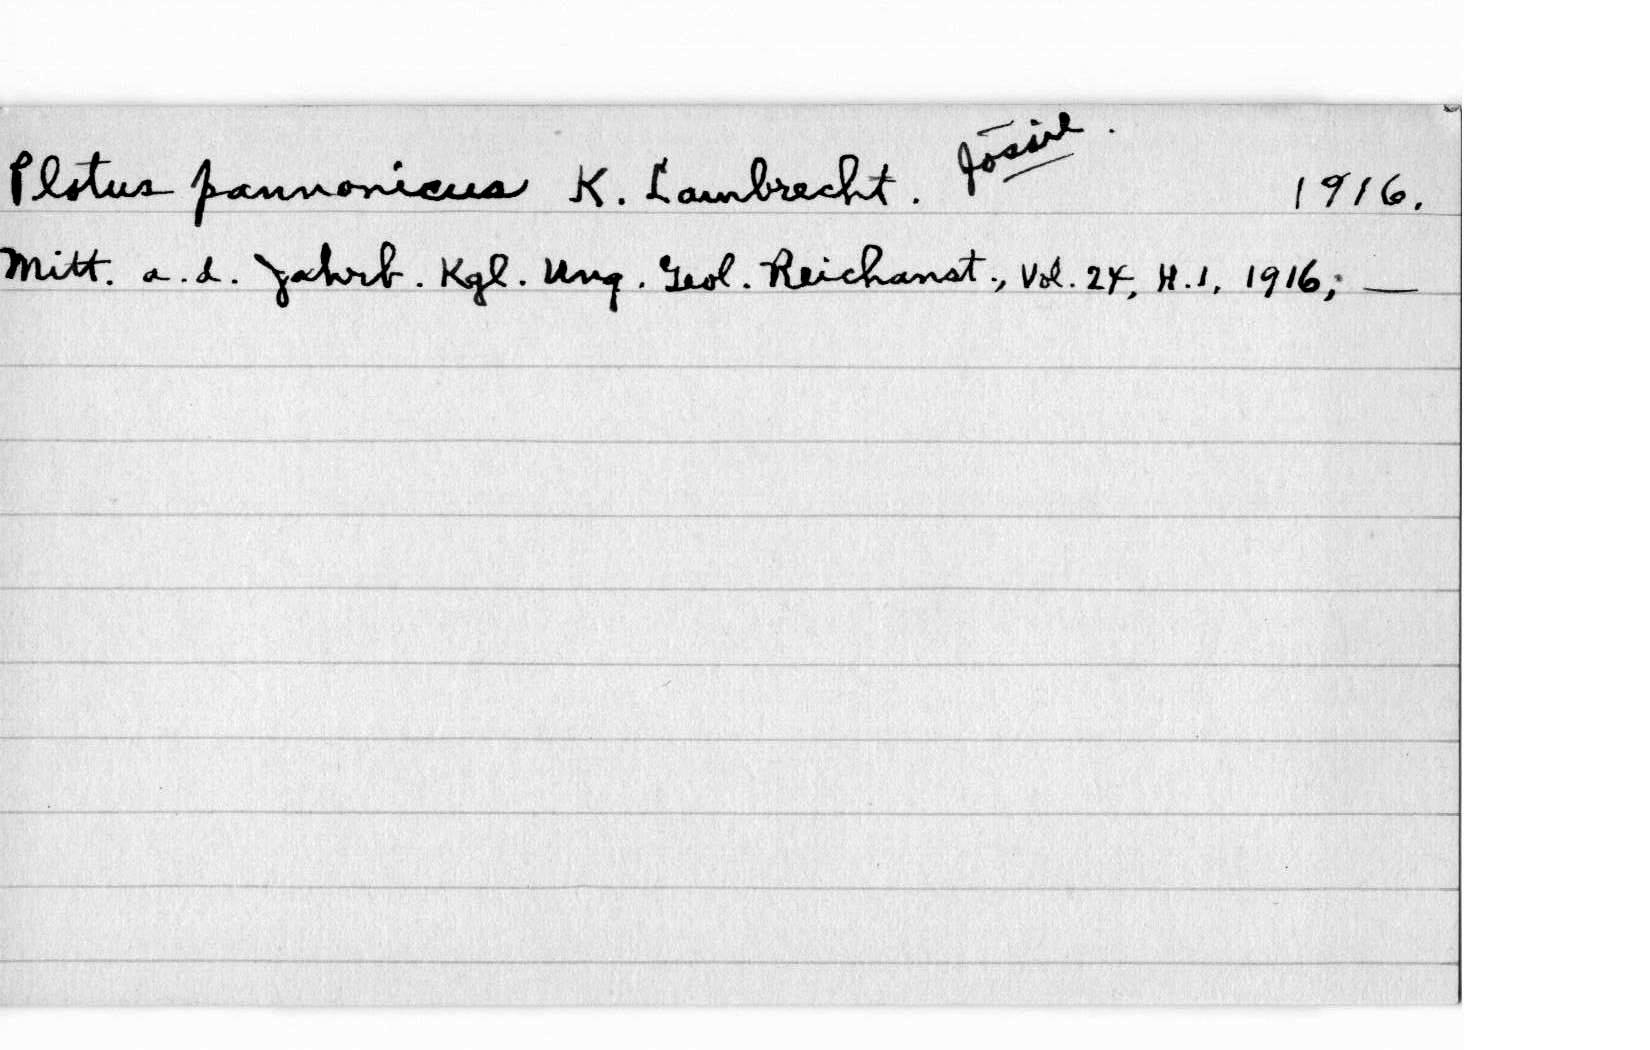 Plotus pannonicus K. Lambrecht. fossil. 1916.
Mitt. a. d. Jahrb. Kgl. Ung. Geol. Reichanst., Vol. 24, H. 1, 1916; —